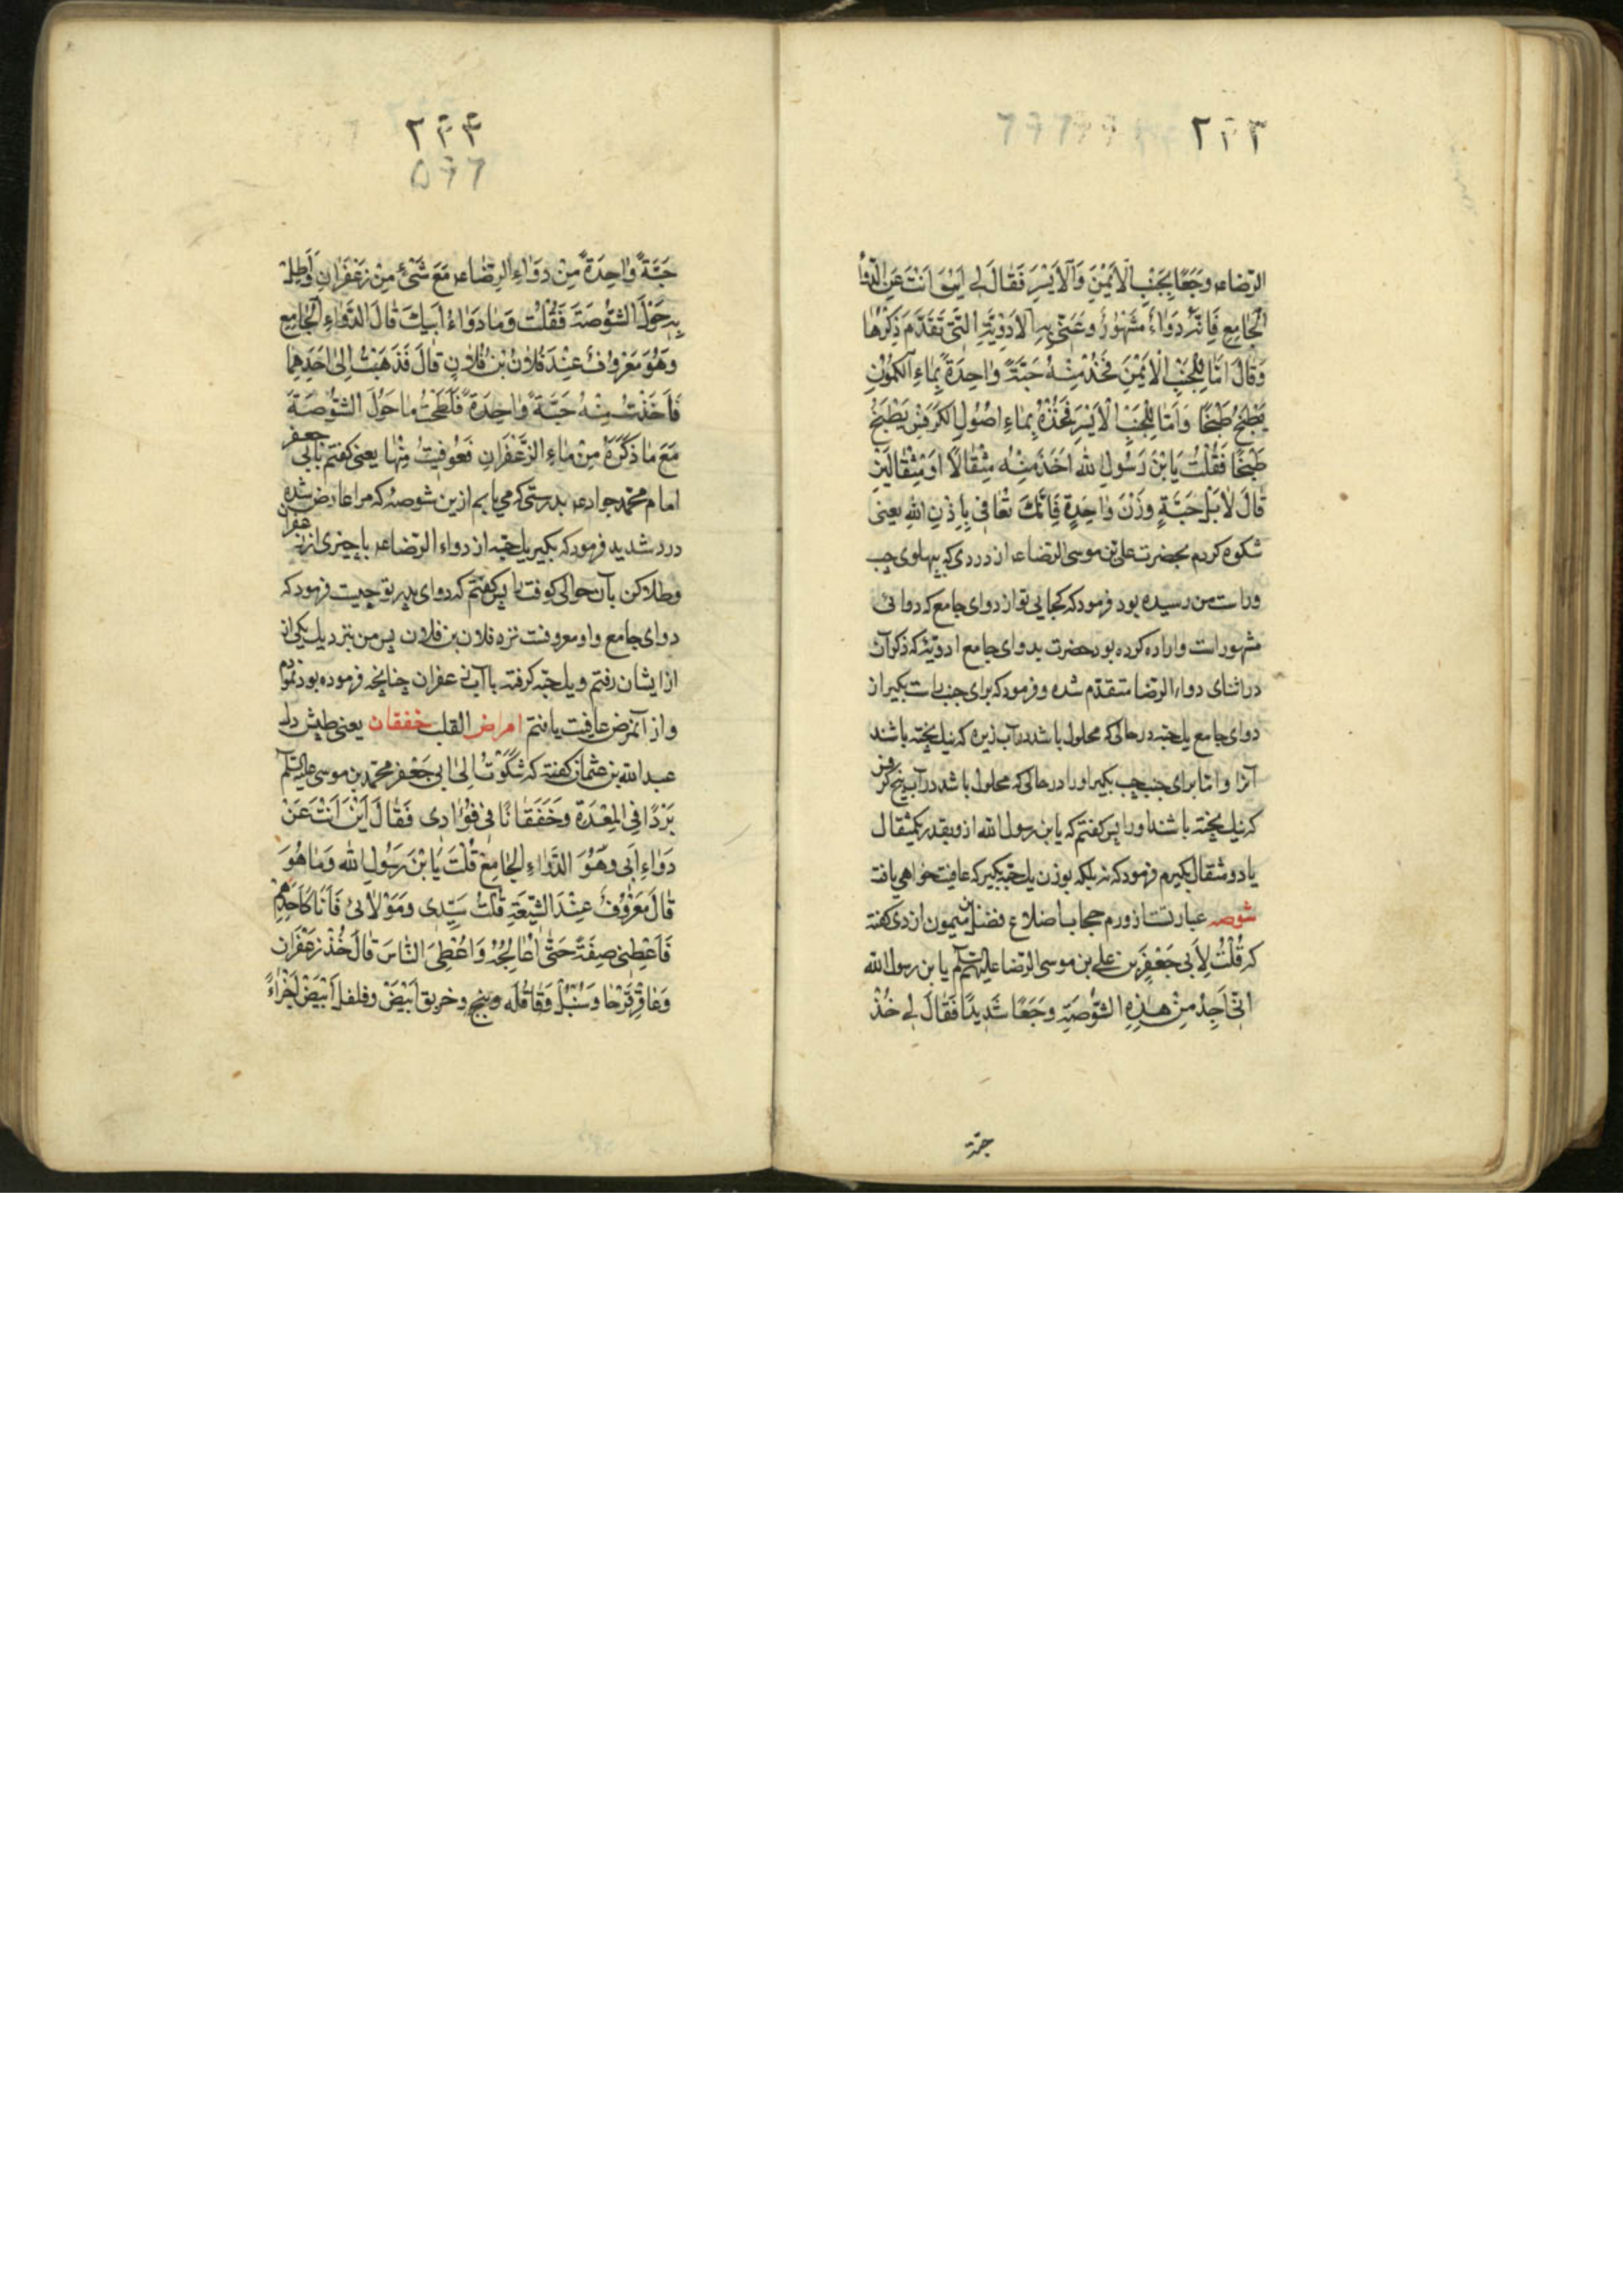 ۲۳۳
الرّضاء؏ وجَعًا بِجَنْبِ الاَيْمَنِ وَالاَيْسَرِ فَقٰالَ لِى اَيْنَ اَنْتَ عَنِ الدَّوٰاءِ
الْجٰامِعِ فَاِنَّهُ دَوٰاءٌ مَشْهُورٌ وعَنىٰ بِهِ الاَدْوِيَةِ الَّتى تَقَدَّمَ ذِكْرُهٰا
وَقٰالَ امّٰا لِلْجَنْبِ الْاَيْمَنِ فَخُذْ مِنْهُ حَبَّةً وٰاحِدَةً بِمٰاءِ الكَمُّونِ
يُطْبَخُ طَبْخًا وَامّٰا لِلْجَنْبِ الْاَيْسَرِ فَخُذْهُ بِمٰاءِ اصُولِ الكَرَفْسِ يُطْبَخُ
طَبْخًا فَقُلْتُ يَابْنَ رَسُولِ الله اخُذُ مِنْهُ مِثْقٰالًا اَوْ مِثْقٰالَيْنِ
قٰالَ لٰا بَلْ حَبَّةٍ وَزْنَ وٰاحِدَةٍ فَاِنَّكَ تُعٰافىٰ بِاِذْنِ اللهِ يعنى
شكوه كردم بحضرت على بن موسى الرّضاء؏ از دردى كه بپهلوى چپ
وراست من رسيده بود فرمود كه كجايى تو از دواى جامع كه دوائى
مشهور است واراده كرده بود حضرت بدواى جامع ادويه كه ذكر آن
در اثناى دواء الرضا متقدّم شده وفرمود كه براى جنب راست بگير از
دواى جامع يك حبّه در حالى كه محلول باشد در آب زيره كه نيك پخته باشند
آنرا وامّا براى جنب چپ بگير او را در حالى كه محلول باشد در آب بيخ كرفس
كه نيك پخته باشند او را پس گفتم كه يابن رسول الله از و بقدر يكمثقال
يا دو مثقال بگيرم فرمود كه نه بلكه بوزن يك حبّه بگير كه عافيت خواهى يافت
شوصه عبارتست از ورم حجاب اضلاع فضل بن ميمون ازدى گفته
كه قُلْتُ لِاَبى جَعْفَرِ بن على بن موسى الرّضا عليهم السّلم يا بن رسول الله
اِنّى اَجِدُ مِنْ هٰذِهِ الشَّوْصَةِ وجَعًا شَديدًا فَقٰالَ لِى خُذْ
حبّة
۲۳۴
۵۶۶
حَبَّةً وٰاحِدَةً مِنْ دَوٰاءِ الرِضٰاء؏ مَعَ شَئٍ مِنْ زَعْفَرٰانِ وَاطْلِ
بِهِ حَوْلَ الشَّوْصَةَ فَقُلْتُ وَمٰا دَوٰاءُ اَبيكَ قٰالَ الدَّوٰاءِ الْجٰامِع
وَهُوَ مَعْرُوفٌ عِنْدَ فُلٰانُ بْنِ فُلٰانٍ قٰالَ فَذَهَبْتُ اِلىٰ اَحَدِهِمٰا
فَاَخَذْتُ مِنْهُ حَبَّةً وٰاحِدَةً فَلَطَخْتُ مٰا حَوْلَ الشَّوْصَةَ
مَعَ مٰا ذَكَرَهُ مِنْ مٰاءِ الزَّعْفَرٰانِ فَعُوفيتُ مِنْهٰا يعنى گفتم بابى جعفر
امام محمّد جواد؏ بدرستى كه مى يابم ازين شوصه كه مرا عارض شده
درد شديد فرمود كه بگير يك حبّه از دواء الرّضاء؏ با چيزى از زعفران
وطلا كن بآن حوالى كوفت را پس گفتم كه دواى پدر تو چيست فرمود كه
دواى جامع واو معروفست نزد فلان بن فلان پس من بنزديك يكى از
از ايشان رفتم ويك حبّه گرفته با آب زعفران چنانچه فرموده بود نمودم
واز آنمرض عافيت يافتم امراض القلب خفقان يعنى طپش دل
عبد الله بن عثمان گفته كه شَكَوْتُ اِلىٰ ابى جَعْفَر محمّد بن موسى عليه السلم
بَرْدًا فِى المِعْدَةِ وَخَفَقٰانًا فى فُؤٰادى فَقٰالَ اَيْنَ اَنْتَ عَنْ
دَوٰاءِ اَبى وَهُوَ الدَّوٰاءِ الجٰامِعُ قُلْتُ يَابْنَ رَسُولِ الله وَمٰا هُوَ
قٰالَ مَعْرُوفٌ عِنْدَ الشّيعَةِ قُلْتُ سَيِّدى ومَوْلٰائ فَاَنَا كَاَحَدِهِمْ
فَاَعْطِنى صِفَتَهُ حَتّىٰ اُعٰالِجَهُ وَاُعْطِىَ النّٰاسَ قٰالَ خُذْ زَعْفَرٰان
وَعٰاقِرْقَرْحٰا وَسُنْبُلْ وَقٰاقُلَه وبنج وخربق اَبْيَضْ وفلفل اَبْيَضْ اَجْزٰاءً